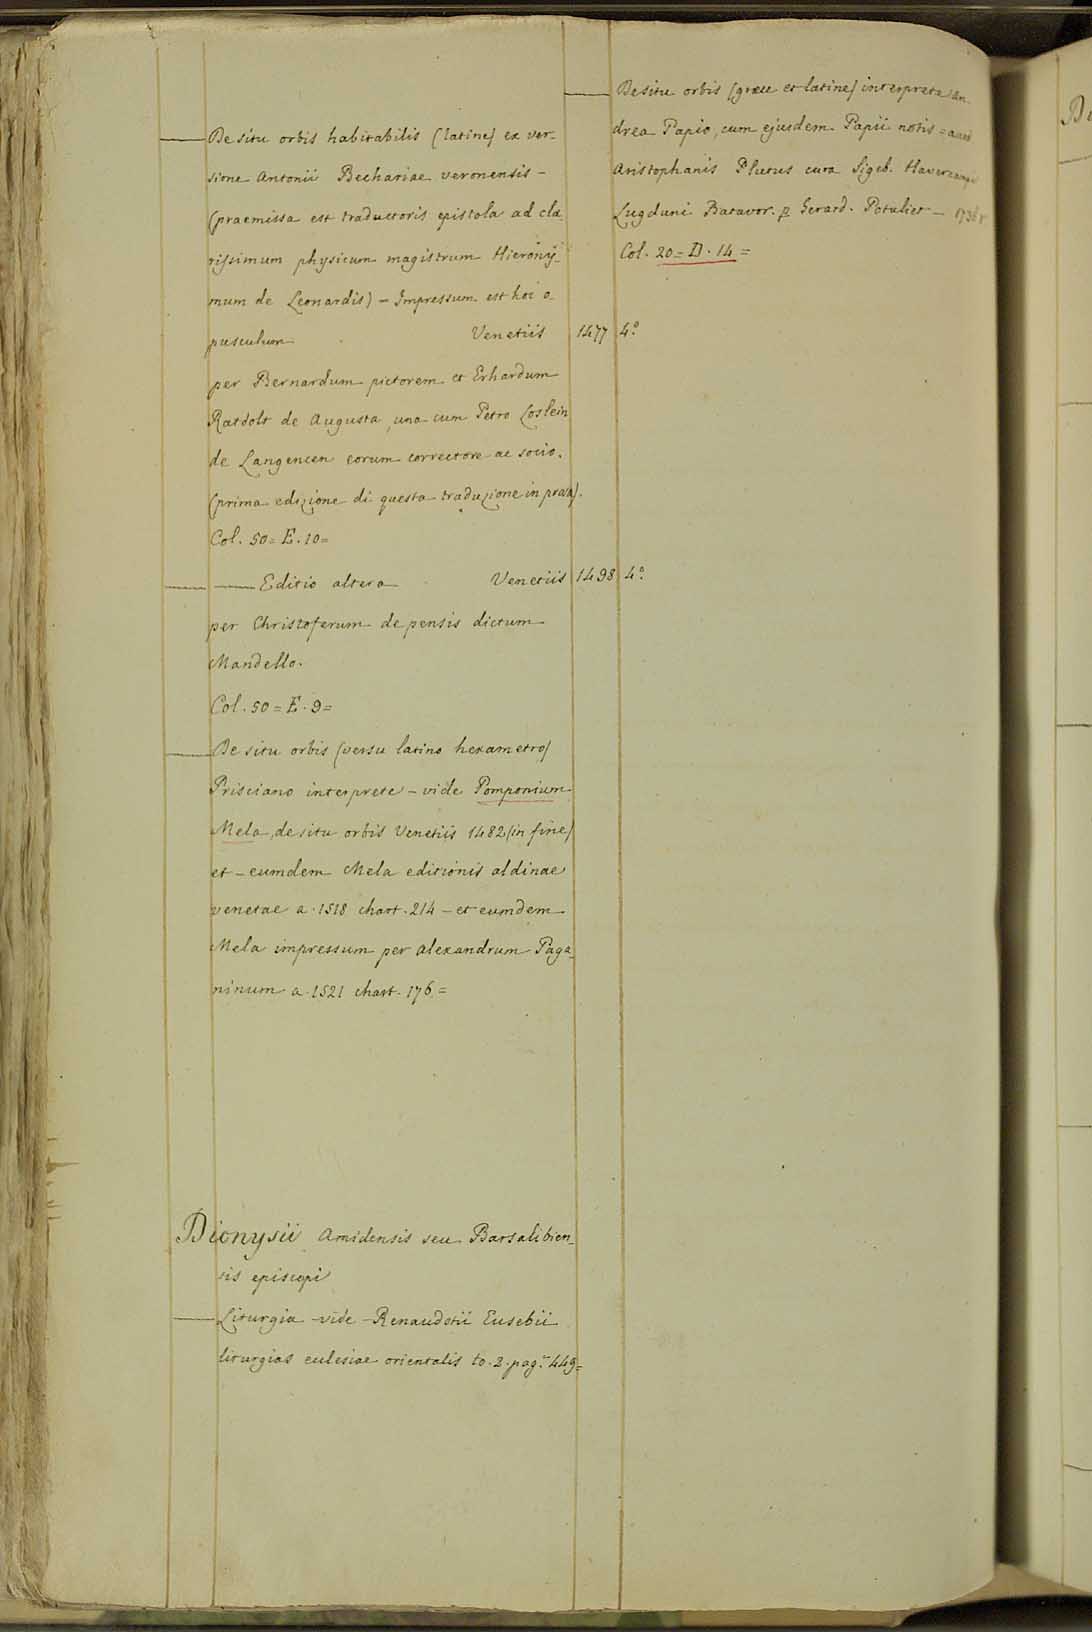 De situ orbis habitabilis (latine) ex ver-
sione Antonii Bechariae veronensis -
(praemissa est traductoris epistola ad cla-
rissimum physicum magistrum Hierony-
mum de Leonardis) - Impressum est hoc o-
pusculum Venetiis 1477 4.º
per Bernardum pictorem et Erhardum
Ratdolt de Augusta, una cum Petro Loslein
de Langencen eorum correctore ac socio.
(prima edizione di questa traduzione in prosa).
Col. 50 = E. 10 =
Editio altera Venetiis 1498 4.º
per Christoferum de pensis dictum
Mandello.
Col. 50 = E. 9 =
De situ orbis (versu latino hexametro)
Prisciano interprete - vide Pomponium
Mela, de situ orbis Venetiis 1482 (in fine)
et - eumdem Mela editionis aldinae
venetae a. 1518 chart. 214 - et eumdem
Mela impressum per alexandrum Paga-
ninum a. 1521 chart. 176 =
Dionysii Amidensis seu Barsalibien-
sis episcopi
Liturgia - vide - Renaudotii Eusebii
liturgias eclesiae orientalis to. 2. pag. 449 =
De situ orbis (graece et latine) interprete An-
drea Papio, cum ejusdem Papii notis =
Aristophanis Plutus cura Sigeb. Havercampi
Lugduni Batavor. p Gerard. Potuliet -
Col. 20 = D. 14 =